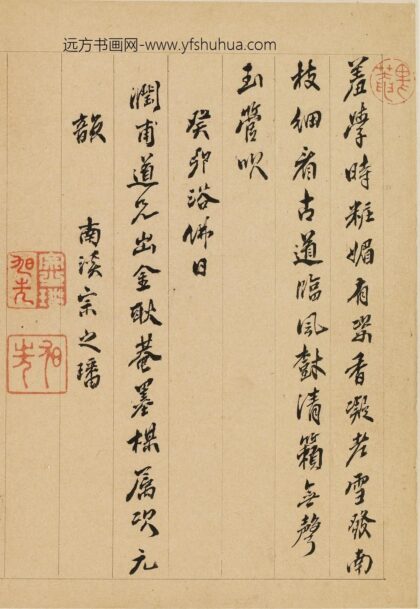 远方书画网-www.yfshuhua.com
羞學時粧媚有餘香凝老雪發南
枝細看古道臨風獻清籟無聲
玉管吹
癸卯浴佛日
潤甫道兄出金耿菴墨楳属次元
韻
南陔宗之璠